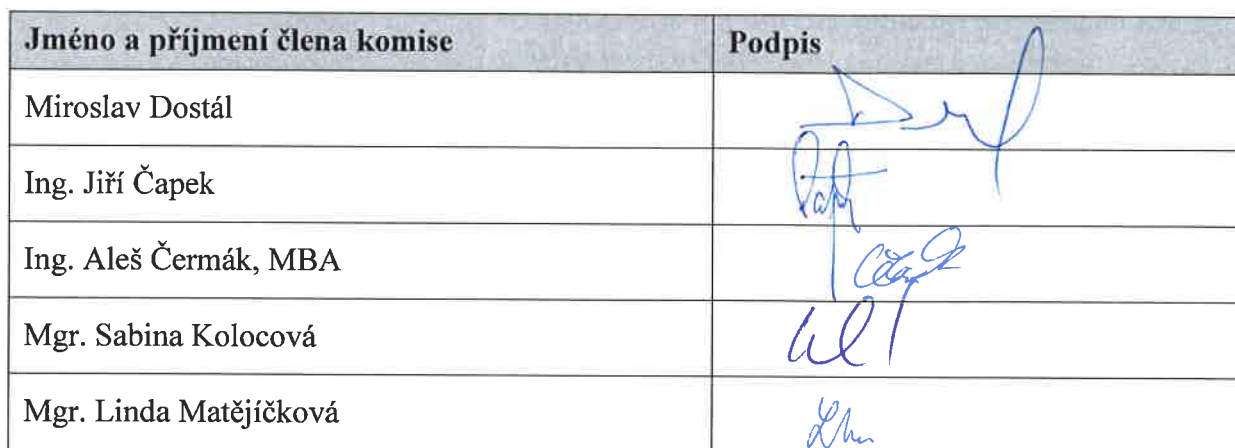 Jméno a příjmení člena komise Podpis
Miroslav Dostál
Ing. Jiří Čapek
Ing. Aleš Čermák, MBA
Mgr. Sabina Kolocová
Mgr. Linda Matějíčková